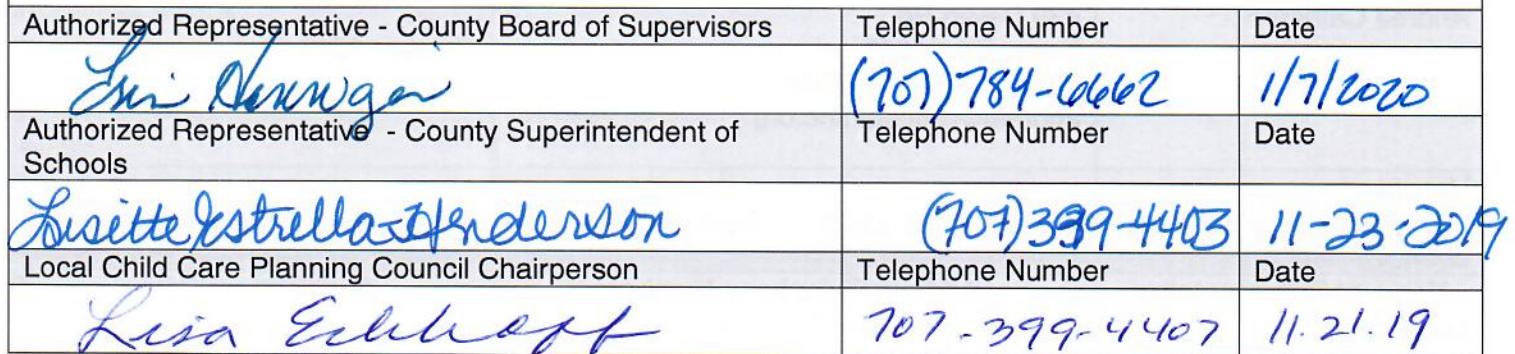 Authorized Representative - County Board of Supervisors Telephone Number Date
Erin Hannigan (707) 784-6662 1/7/2020
Authorized Representative - County Superintendent of Telephone Number Date
Schools
Lisette Estrella-Henderson (707) 399-4403 11-23-2019
Local Child Care Planning Council Chairperson Telephone Number Date
Lisa Eckhoff 707-399-4407 11.21.19